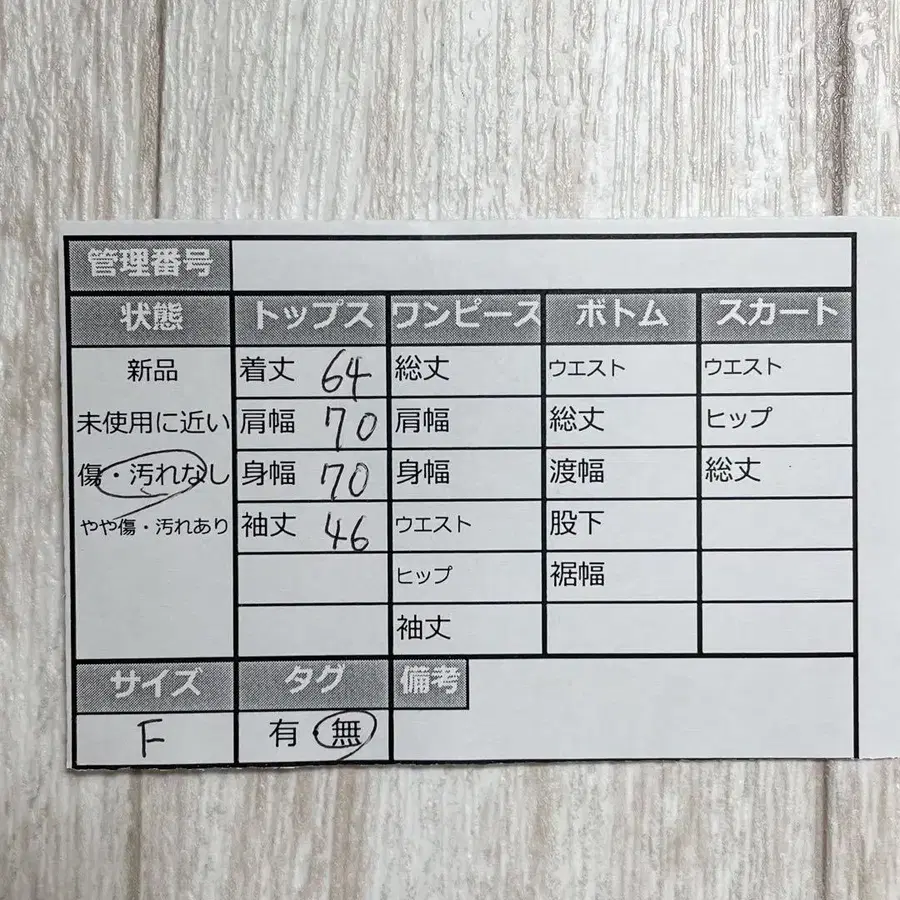 管理番号
状態 トップス ワンピース ボトム スカート
新品 着丈 64 総丈 ウエスト ウエスト
未使用に近い 肩幅 70 肩幅 総丈 ヒップ
傷・汚れなし 身幅 70 身幅 渡幅 総丈
やや傷・汚れあり 袖丈 46 ウエスト 股下
ヒップ 裾幅
袖丈
サイズ タグ 備考
F 有・無